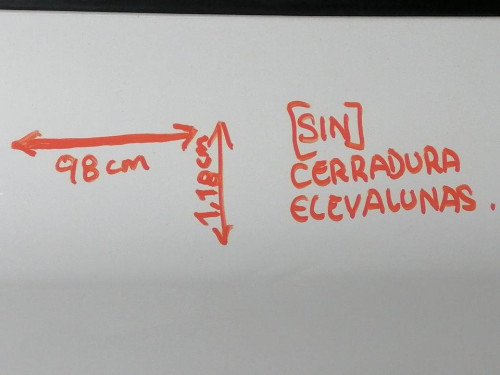 98 cm
1,18 cm
[SIN]
CERRADURA
ELEVALUNAS.